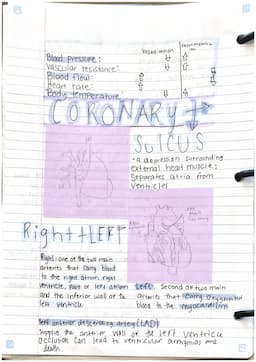 Vasodilation
Blood pressure:
Vascular resistance:
Blood flow:
Heart rate:
Body temperature
CORONARY
SULCUS
: a depression surrounding
external heart muscle:
Separates atria from
ventricles
Right + LEFT
Right: one of the two main
arteries that carry blood
to the right atrium, right
ventricle, part of left atrium
and the inferior wall of the
left ventricle
LEFT: Second of two main
arteries that carry oxygenated
blood to the myocardium
left anterior descending artery (LAD)
Supplie the anterior wall of the left ventricle
occlusion can lead to ventricular arrhythmias and
death